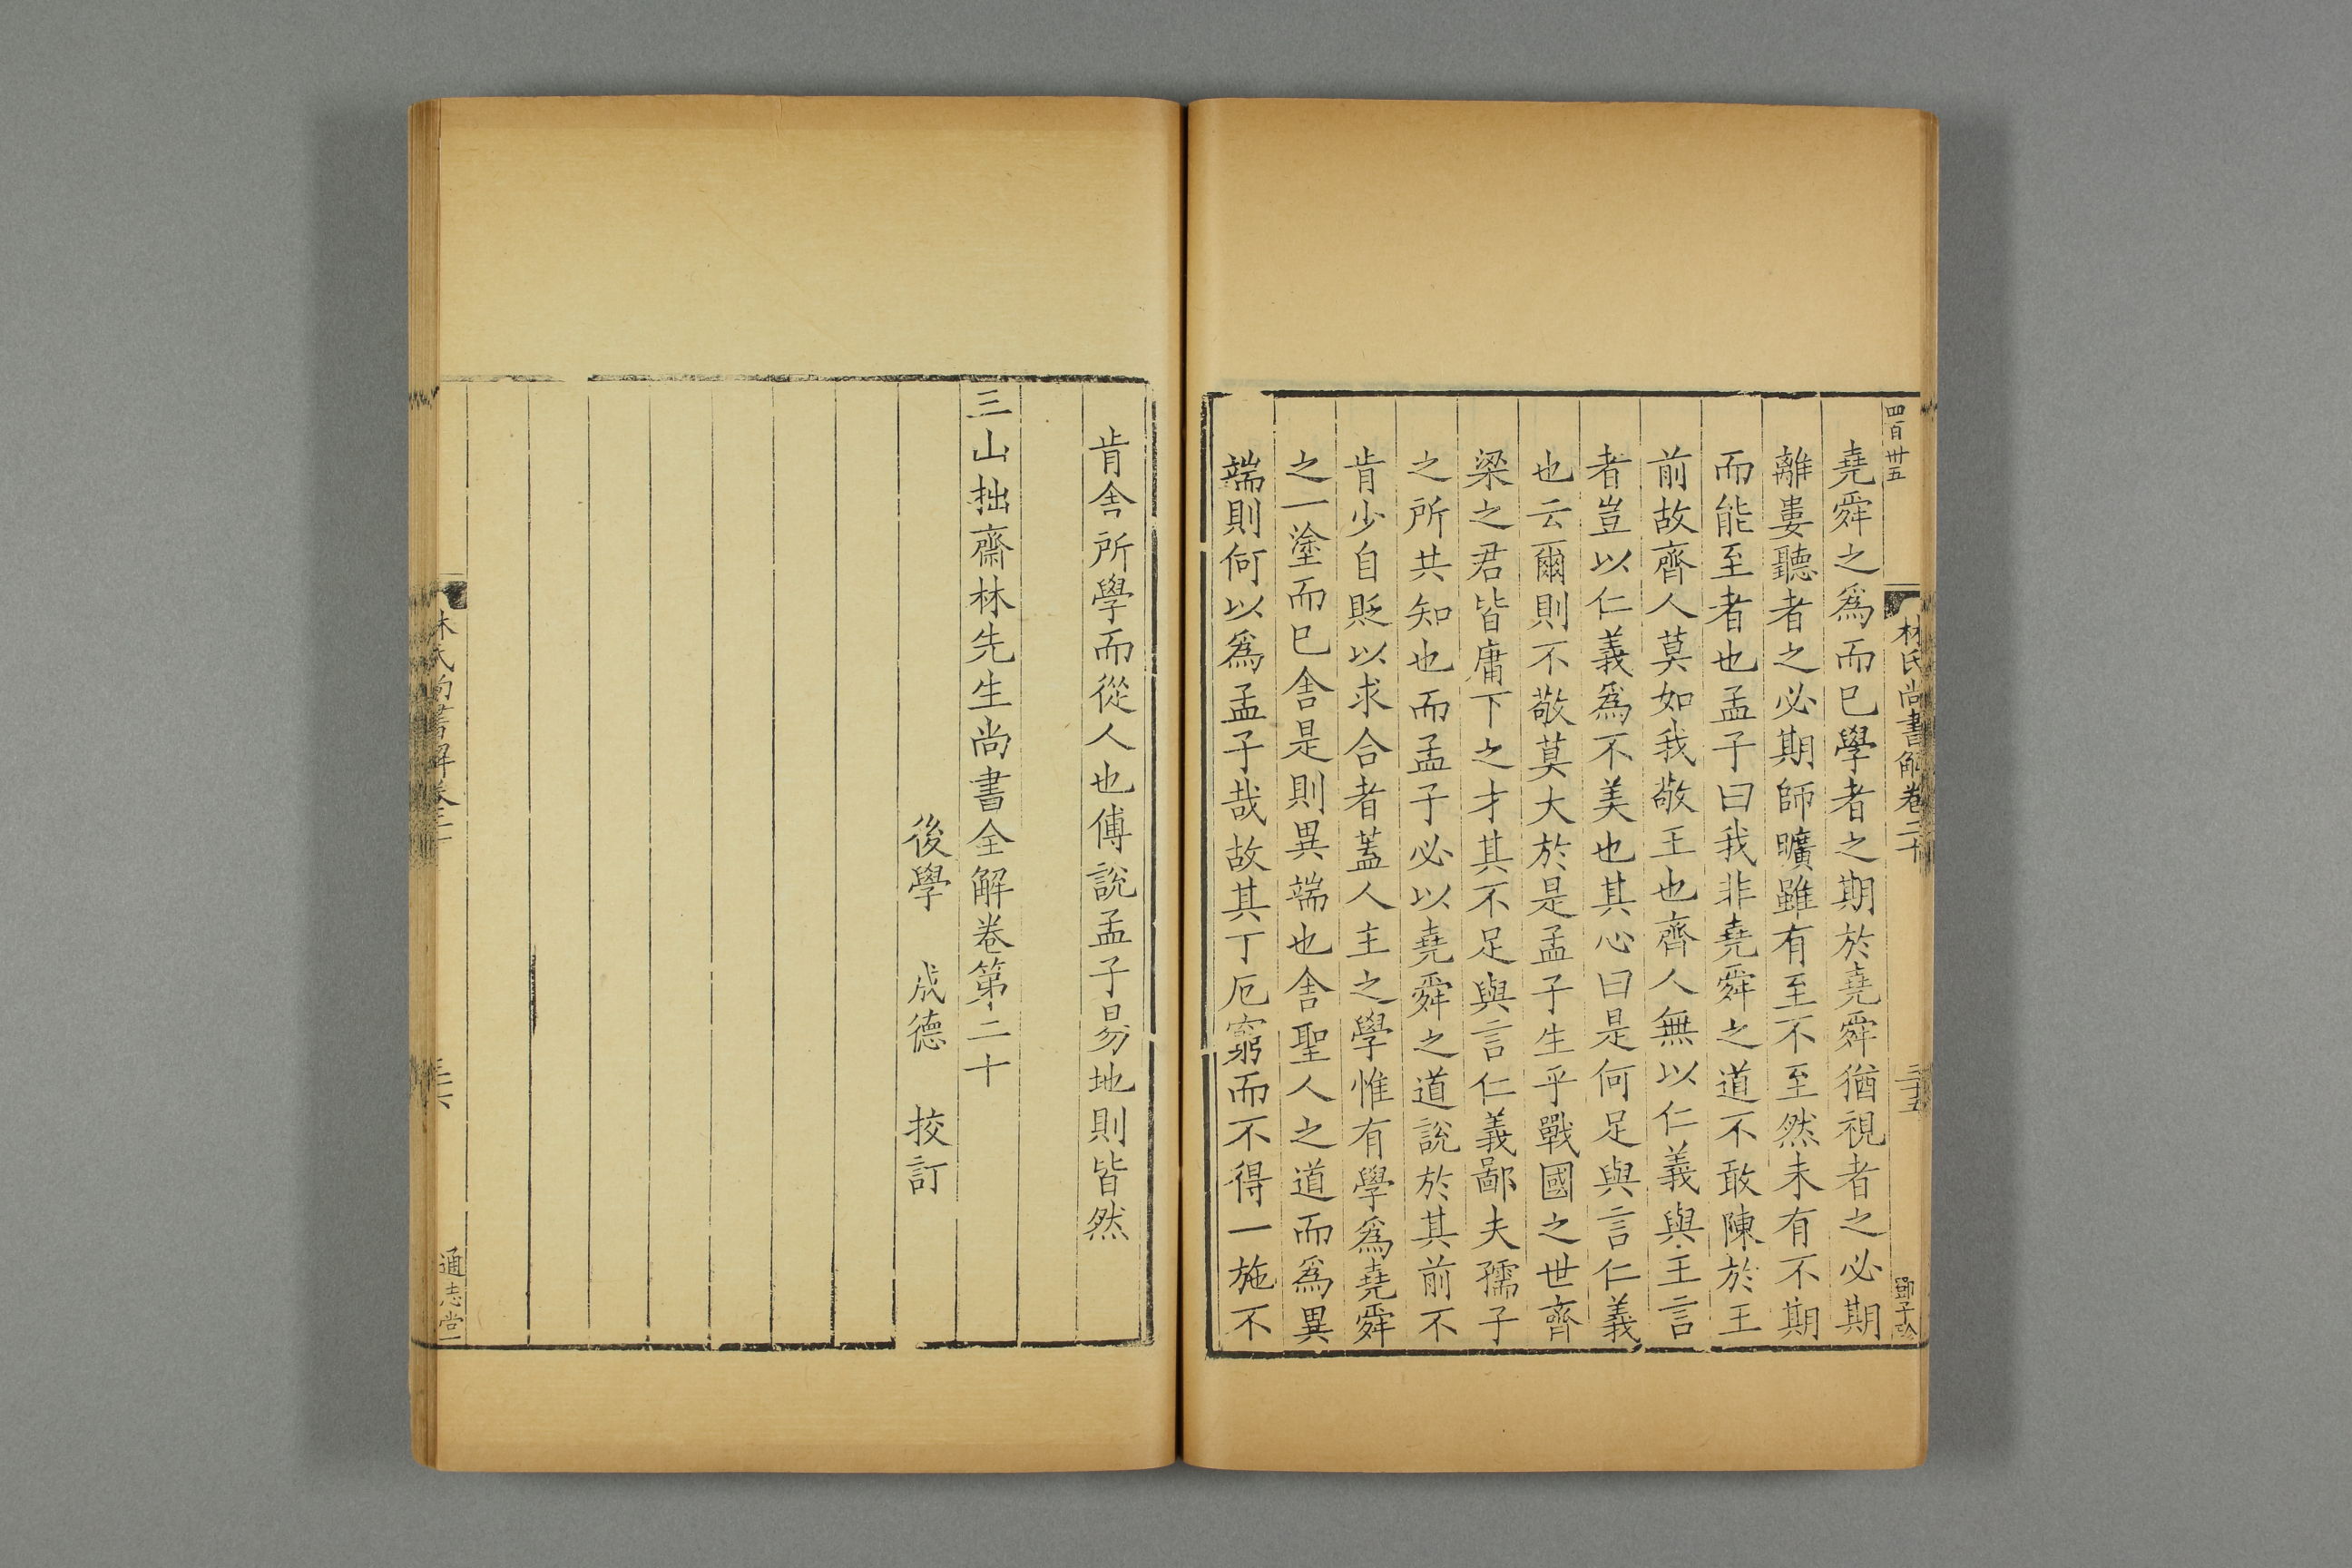 四百卅五
林氏尚書解卷二十
三十五
堯舜之爲而已學者之期於堯舜猶視者之必期
離婁聽者之必期師曠雖有至不至然未有不期
而能至者也孟子曰我非堯舜之道不敢陳於王
前故齊人莫如我敬王也齊人無以仁義與王言
者豈以仁義爲不美也其心曰是何足與言仁義
也云爾則不敬莫大於是孟子生乎戰國之世齊
梁之君皆庸下之才其不足與言仁義鄙夫孺子
之所共知也而孟子必以堯舜之道說於其前不
肯少自貶以求合者蓋人主之學惟有學爲堯舜
之一塗而已舍是則異端也舍聖人之道而爲異
端則何以爲孟子哉故其丁厄窮而不得一施不
肯舍所學而從人也傅說孟子易地則皆然
三山拙齋林先生尚書全解卷第二十
後學 成德 挍訂
林氏尚書解卷二十
通志堂